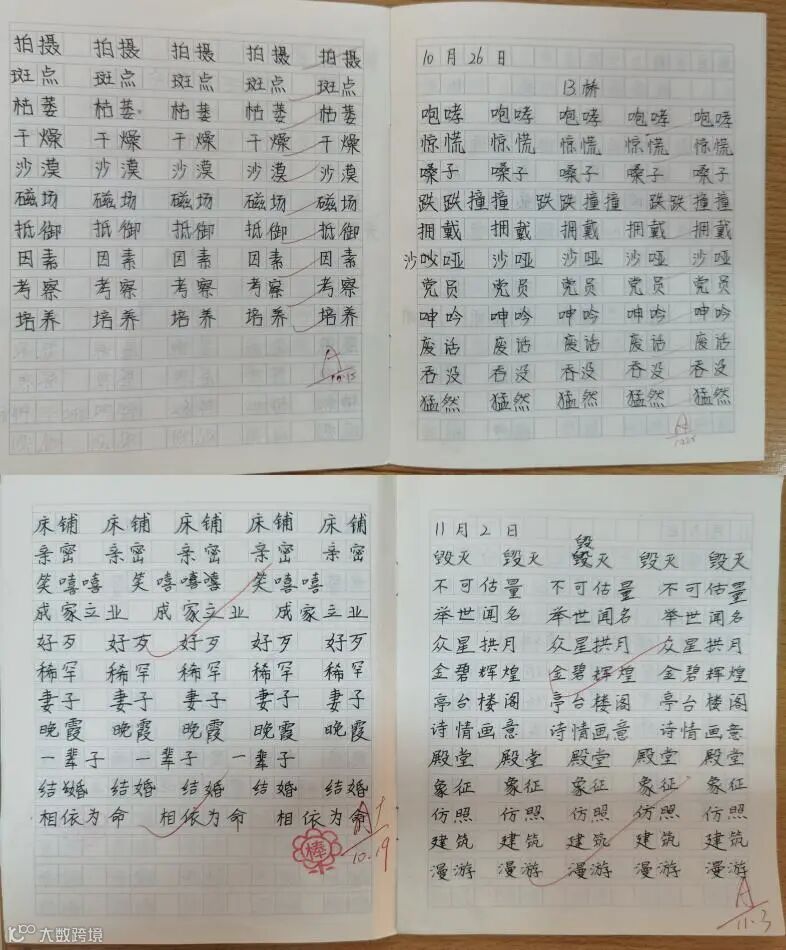 拍摄 拍摄 拍摄 拍摄 拍摄
斑点 斑点 斑点 斑点 斑点
枯萎 枯萎 枯萎 枯萎 枯萎
干燥 干燥 干燥 干燥 干燥
沙漠 沙漠 沙漠 沙漠 沙漠
磁场 磁场 磁场 磁场 磁场
抵御 抵御 抵御 抵御 抵御
因素 因素 因素 因素 因素
考察 考察 考察 考察 考察
培养 培养 培养 培养 培养
A
10月26日
13桥
咆哮 咆哮 咆哮 咆哮 咆哮
惊慌 惊慌 惊慌 惊慌 惊慌
嗓子 嗓子 嗓子 嗓子 嗓子
跌跌撞撞 跌跌撞撞 跌跌撞撞
拥戴 拥戴 拥戴 拥戴 拥戴
沙哑 沙哑 沙哑 沙哑 沙哑
党员 党员 党员 党员 党员
呻吟 呻吟 呻吟 呻吟 呻吟
废话 废话 废话 废话 废话
吞没 吞没 吞没 吞没 吞没
猛然 猛然 猛然 猛然 猛然
床铺 床铺 床铺 床铺 床铺
亲密 亲密 亲密 亲密 亲密
笑嘻嘻 笑嘻嘻 笑嘻嘻
成家立业 成家立业 成家立业
好歹 好歹 好歹 好歹 好歹
稀罕 稀罕 稀罕 稀罕 稀罕
妻子 妻子 妻子 妻子 妻子
晚霞 晚霞 晚霞 晚霞 晚霞
一辈子 一辈子 一辈子
结婚 结婚 结婚 结婚 结婚
相依为命 相依为命 相依为命
棒
A+
10.19
11月2日
毁
毁灭 毁灭 毁灭 毁灭 毁灭
不可估量 不可估量 不可估量
举世闻名 举世闻名 举世闻名
众星拱月 众星拱月 众星拱月
金碧辉煌 金碧辉煌 金碧辉煌
亭台楼阁 亭台楼阁 亭台楼阁
诗情画意 诗情画意 诗情画意
殿堂 殿堂 殿堂 殿堂 殿堂
象征 象征 象征 象征 象征
仿照 仿照 仿照 仿照 仿照
建筑 建筑 建筑 建筑 建筑
漫游 漫游 漫游 漫游 漫游
A
11.3
大数跨境